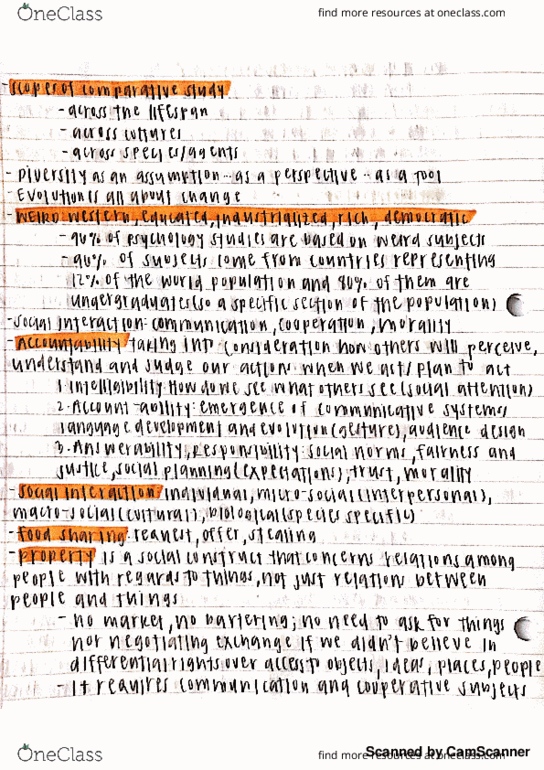 OneClass
find more resources at oneclass.com
scopes of comparative study
- across the lifespan
- across cultures
- across species/agents
- Diversity as an assumption - as a perspective - as a tool
- Evolution is all about change
- WEIRD: western, educated, industrialized, rich, democratic
- 96% of psychology studies are based on weird subjects
- 96% of subjects come from countries representing
12% of the world population and 80% of them are
undergraduates (so a specific section of the population)
- social interaction: communication, cooperation, morality
- Accountability taking into consideration how others will perceive,
understand and judge our actions when we act/plan to act
1. Intelligibility: How do we see what others see (social attention)
2. Account-ability: emergence of communicative systems/
language development and evolution (gesture), audience design
3. Answerability, responsibility: social norms, fairness and
justice, social planning (expectations), trust, morality
- social interaction: individual, micro-social (interpersonal),
macro-social (cultural), biological (species specific)
- food sharing: request, offer, stealing
- Property is a social construct that concerns relations among
people with regards to things, not just relations between
people and things
- no market, no bartering; no need to ask for things
nor negotiating exchange if we didn't believe in
differential rights over access to objects, ideas, places, people
- it requires communication and cooperative subjects
OneClass
find more resources at oneclass.com
Scanned by CamScanner